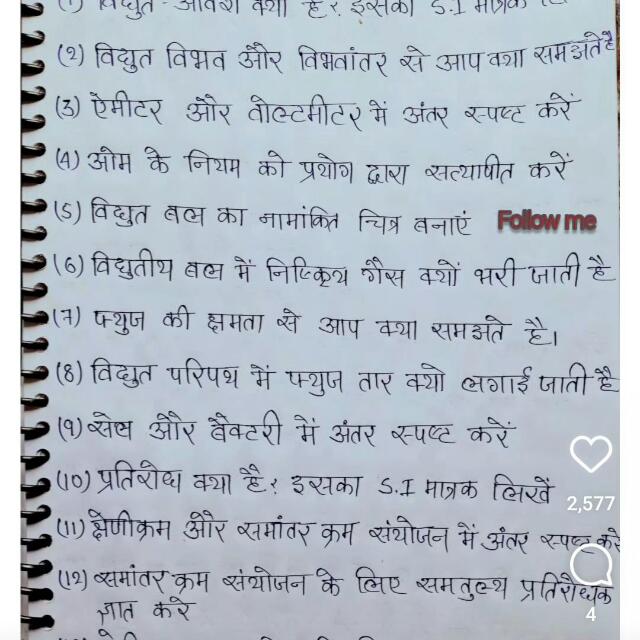 (1) विद्युत-आवेश क्या है? इसका S.I मात्रक
(2) विद्युत विभव और विभवांतर से आप क्या समझते है
(3) ऐमीटर और वोल्टमीटर में अंतर स्पष्ट करें
(4) ओम के नियम को प्रयोग द्वारा सत्यापीत करें
(5) विद्युत बल्ब का नामांकित चित्र बनाएं Follow me
(6) विद्युतीय बल्ब में निष्क्रिय गैस क्यों भरी जाती है
(7) फ्युज की क्षमता से आप क्या समझते है।
(8) विद्युत परिपथ में फ्युज तार क्यो लगाई जाती है
(9) सेल और बैक्टरी में अंतर स्पष्ट करें
(10) प्रतिरोध क्या है? इसका S.I मात्रक लिखें
2,577
(11) श्रेणीक्रम और समांतर क्रम संयोजन में अंतर स्पष्ट करे
(12) समांतर क्रम संयोजन के लिए समतुल्य प्रतिरोधक
ज्ञात करे
4